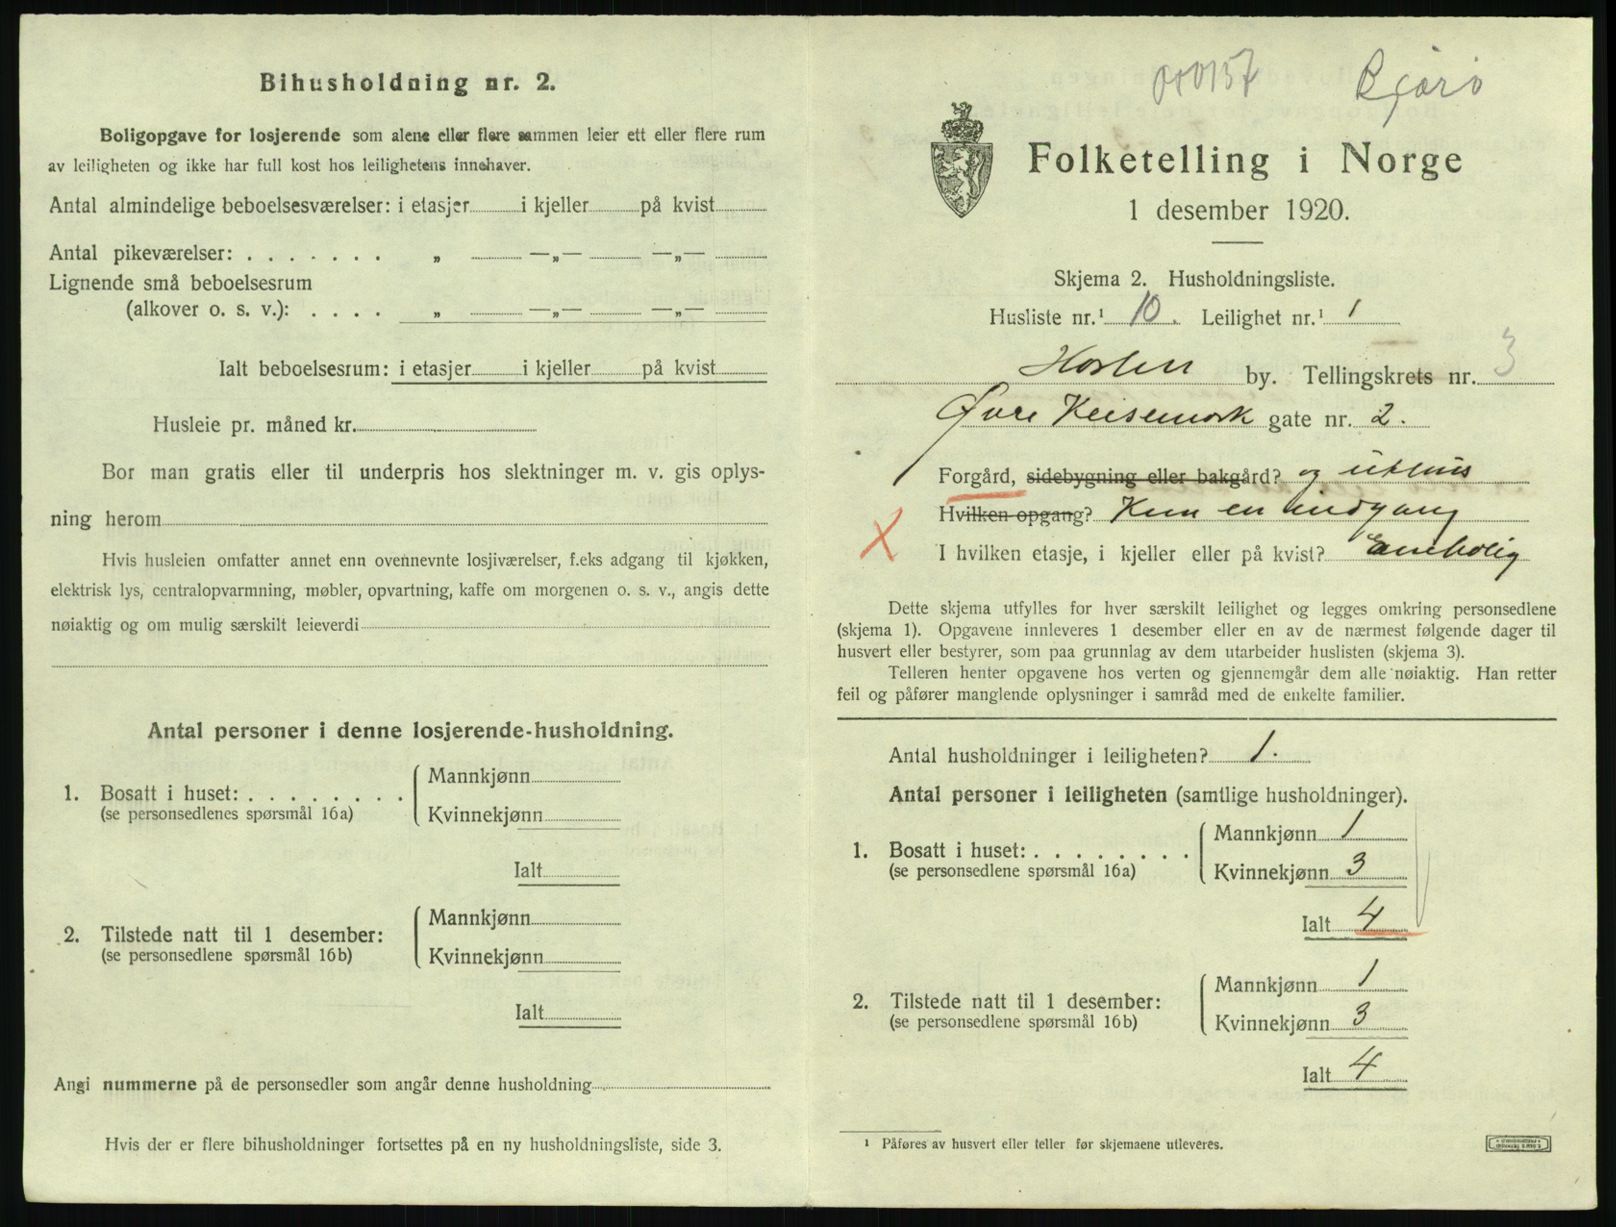 Bihusholdning nr. 2.
Boligopgave for losjerende som alene eller flere sammen leier ett eller flere rum
av leiligheten og ikke har full kost hos leilighetens innehaver.
Antal almindelige beboelsesværelser: i etasjer i kjeller på kvist
Antal pikeværelser: . . . . . . . „ —„— —„—
Lignende små beboelsesrum
(alkover o. s. v.): . . . . „ —„— —„—
Ialt beboelsesrum: i etasjer i kjeller på kvist
Husleie pr. måned kr.
Bor man gratis eller til underpris hos slektninger m. v. gis oplys-
ning herom
Hvis husleien omfatter annet enn ovennevnte losjiværelser, f.eks adgang til kjøkken,
elektrisk lys, centralopvarmning, møbler, opvartning, kaffe om morgenen o. s. v., angis dette
nøiaktig og om mulig særskilt leieverdi
Antal personer i denne losjerende-husholdning.
1. Bosatt i huset: . . . . . . . .
(se personsedlenes spørsmål 16a)
Mannkjønn
Kvinnekjønn
Ialt
2. Tilstede natt til 1 desember:
(se personsedlene spørsmål 16b)
Mannkjønn
Kvinnekjønn
Ialt
Angi nummerne på de personsedler som angår denne husholdning
Hvis der er flere bihusholdninger fortsettes på en ny husholdningsliste, side 3.
Folketelling i Norge
1 desember 1920.
Skjema 2. Husholdningsliste.
Husliste nr.¹ 10. Leilighet nr.¹ 1
Horten by. Tellingskrets nr. 3
Øvre Keisemark gate nr. 2.
Forgård, sidebygning eller bakgård? og uthus
Hvilken opgang? Kun en indgang
I hvilken etasje, i kjeller eller på kvist? Enebolig
Dette skjema utfylles for hver særskilt leilighet og legges omkring personsedlene
(skjema 1). Opgavene innleveres 1 desember eller en av de nærmest følgende dager til
husvert eller bestyrer, som paa grunnlag av dem utarbeider huslisten (skjema 3).
Telleren henter opgavene hos verten og gjennemgår dem alle nøiaktig. Han retter
feil og påfører manglende oplysninger i samråd med de enkelte familier.
Antal husholdninger i leiligheten? 1.
Antal personer i leiligheten (samtlige husholdninger).
1. Bosatt i huset: . . . . . . . .
(se personsedlene spørsmål 16a)
Mannkjønn 1
Kvinnekjønn 3
Ialt 4
2. Tilstede natt til 1 desember:
(se personsedlene spørsmål 16b)
Mannkjønn 1
Kvinnekjønn 3
Ialt 4
¹ Påføres av husvert eller teller før skjemaene utleveres.